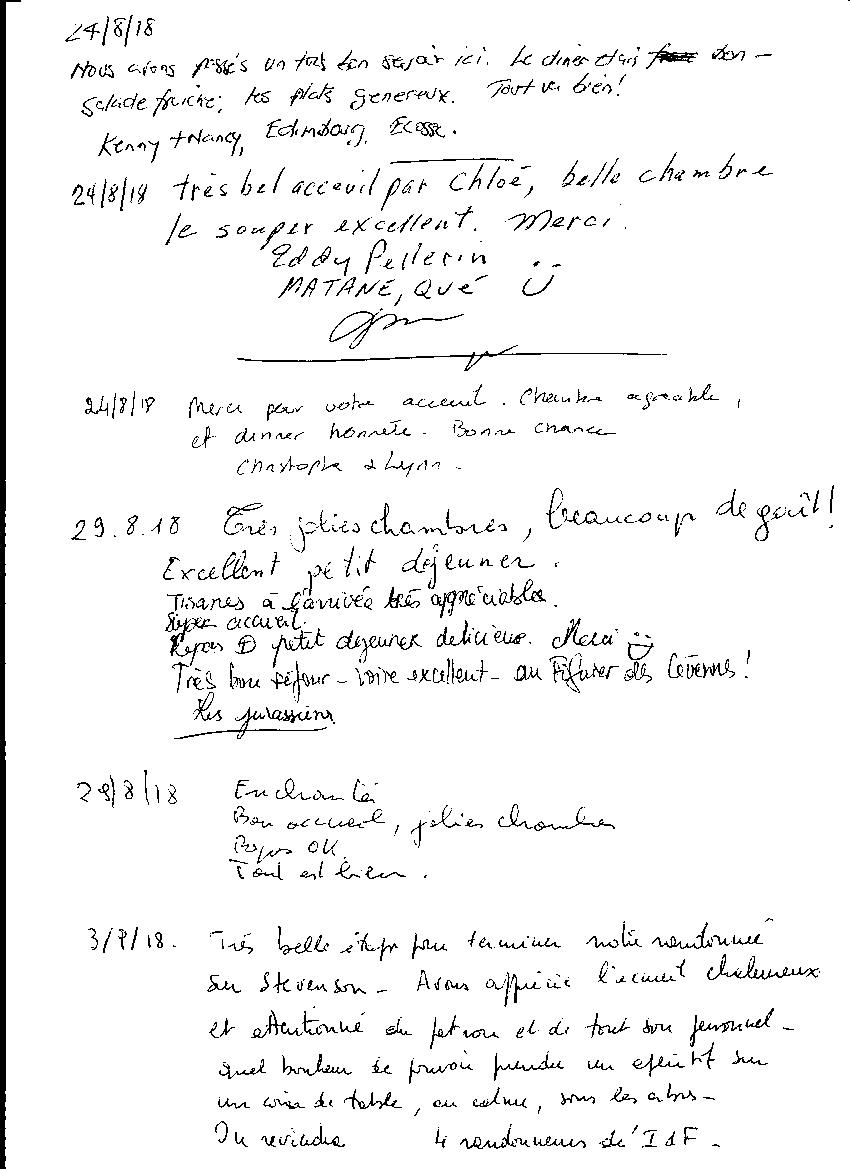 24/8/18
Nous avons passés un très bon sejoir ici. Le diner etais bon –
Salade fraîche, les plats genereux. Tout va bien!
Kenny + Nancy, Edimbourg, Ecosse.
24/8/18 très bel acceuil par Chloé, belle chambre
le souper excellent. Merci.
Eddy Pellerin
MATANE, Qué
24/8/18 Merci pour votre acceuil. Chambre agreable,
et dinner honnête. Bonne chance
Christophe & Lynn.
29.8.18 Très jolies chambres, beaucoup de goût!
Excellent petit déjeuner.
Tisanes à l'arrivée très appréciables.
Super accueil.
Repas petit dejeuner delicieux. Merci
Très bon séjour – voire excellent – au Figuier des Cévennes!
Les jurassiens
29/8/18 Enchantés
Bon accueil, jolies chambres
Repas OK.
Tout est bien.
3/9/18. Très belle étape pour terminer notre randonnée
sur Stevenson – Avons apprécié l'accueil chaleureux
et attentionné du patron et de tout son personnel –
quel bonheur de pouvoir prendre un apéritif sur
un coin de table, au calme, sous les arbres –
On reviendra 4 randonneurs de l'IdF –